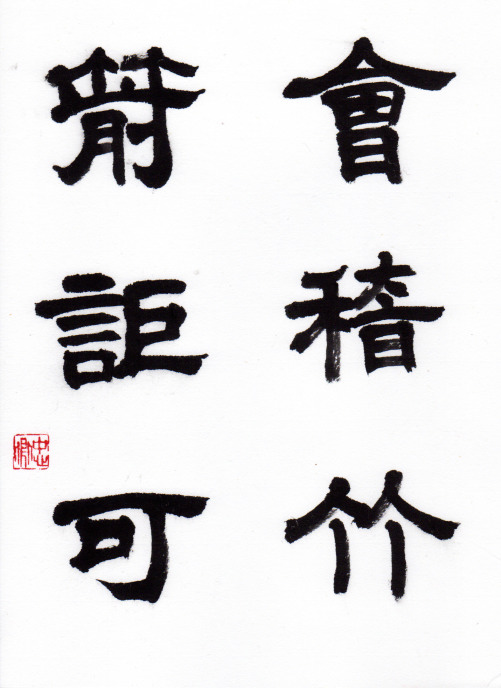 會稽竹
箭詎可